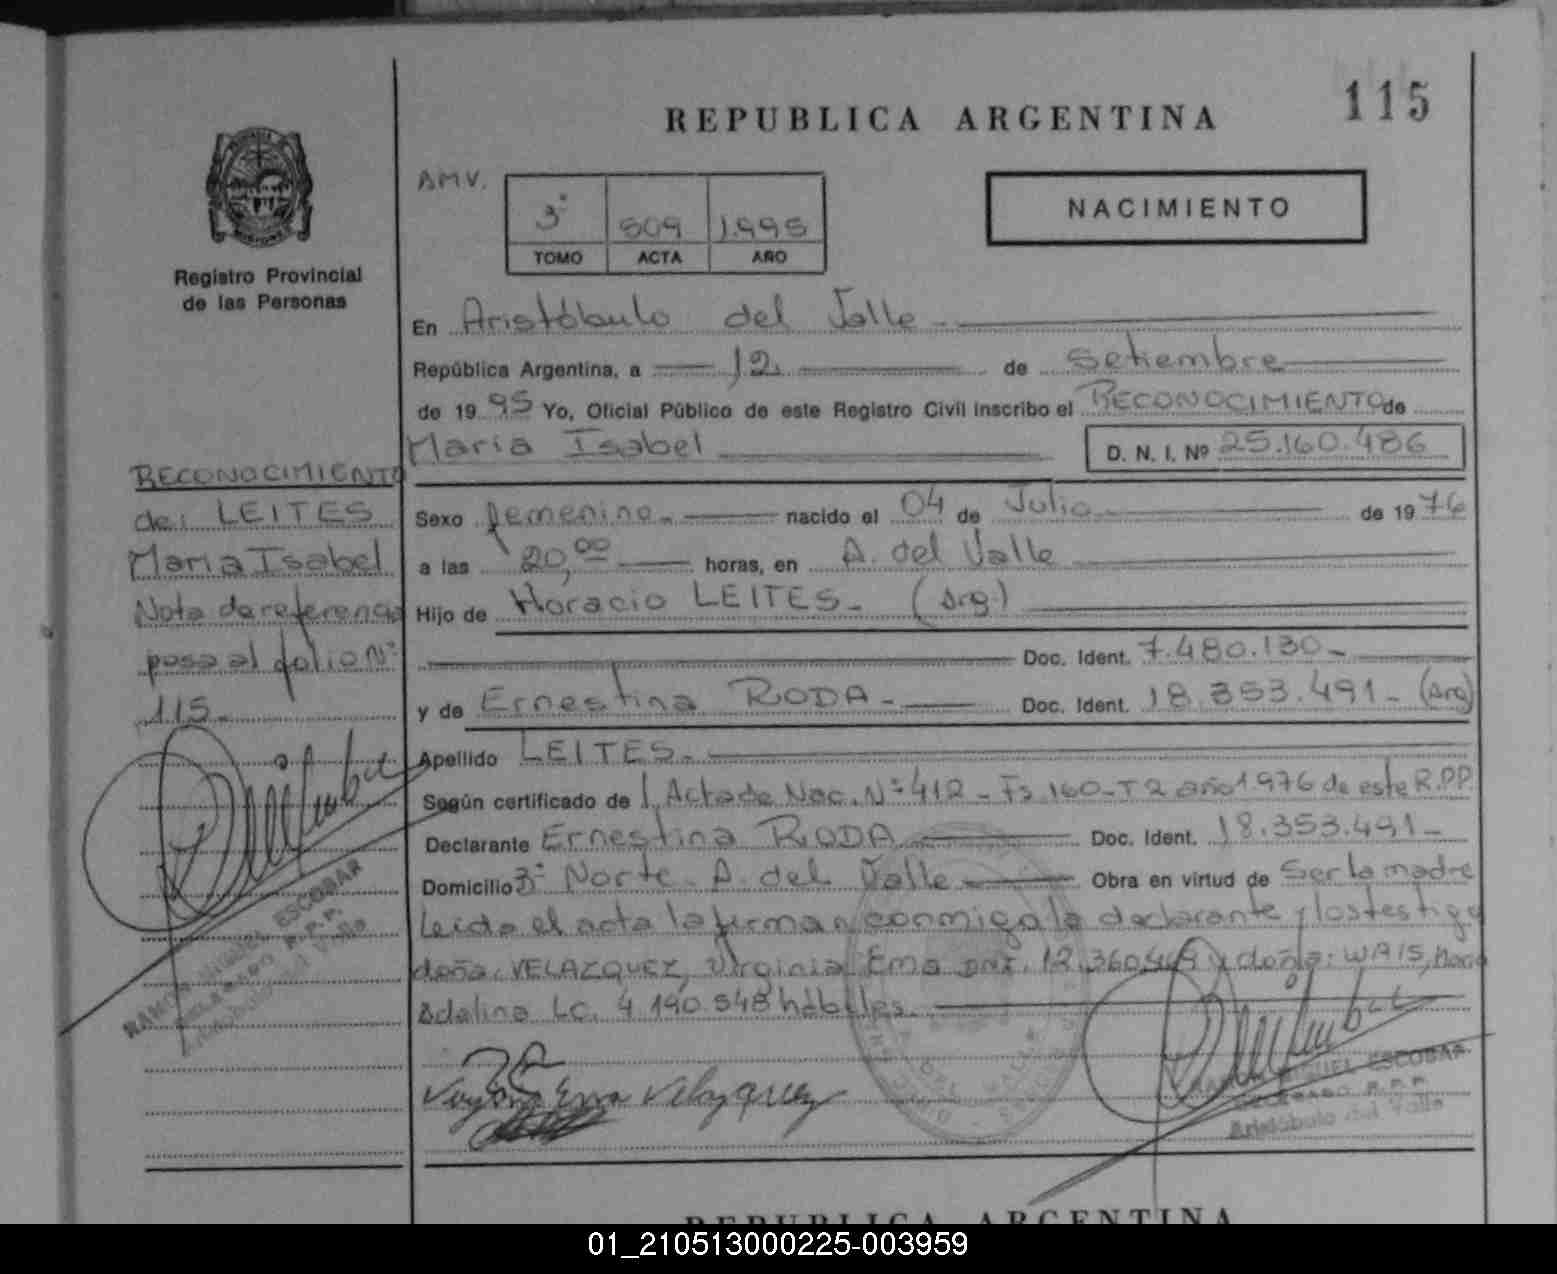 115
REPUBLICA ARGENTINA
AMV.
3º 509 1.995
TOMO ACTA AÑO
NACIMIENTO
Registro Provincial
de las Personas
En Aristóbulo del Valle
República Argentina, a 12 de Setiembre
de 1995 Yo, Oficial Público de este Registro Civil inscribo el RECONOCIMIENTO de
María Isabel D. N. I. Nº 25.160.486
RECONOCIMIENTO
de: LEITES
María Isabel
Nota de referencia
pasa al folio Nº
115.
Sexo femenino. nacido el 04 de Julio de 1976
a las 20,00 horas, en A. del Valle
Hijo de Horacio LEITES. (Arg.)
Doc. Ident. 7.480.130
y de Ernestina RODA. Doc. Ident. 18.353.491 (Arg)
Apellido LEITES.
Según certificado de l. Acta de Nac. Nº 412 - Fs 160 - T 2 año 1.976 de este R.P.P.
Declarante Ernestina RODA Doc. Ident. 18.353.491
Domicilio 3º Norte. A. del Valle Obra en virtud de Ser la madre
Leída el acta la firman conmigo la declarante y los testigo
doña: VELAZQUEZ, Virginia Ema DNI. 12.360.469 y doña: WAIS,
Adelina LC. 4.190.548 hábiles.
RAMON MIGUEL ESCOBAR
DELEGADO R.P.P.
Aristóbulo del Valle
Ema Velazquez
MIGUEL ESCOBAR
DELEGADO R.P.P.
Aristóbulo del Valle
REPUBLICA ARGENTINA
01_210513000225-003959